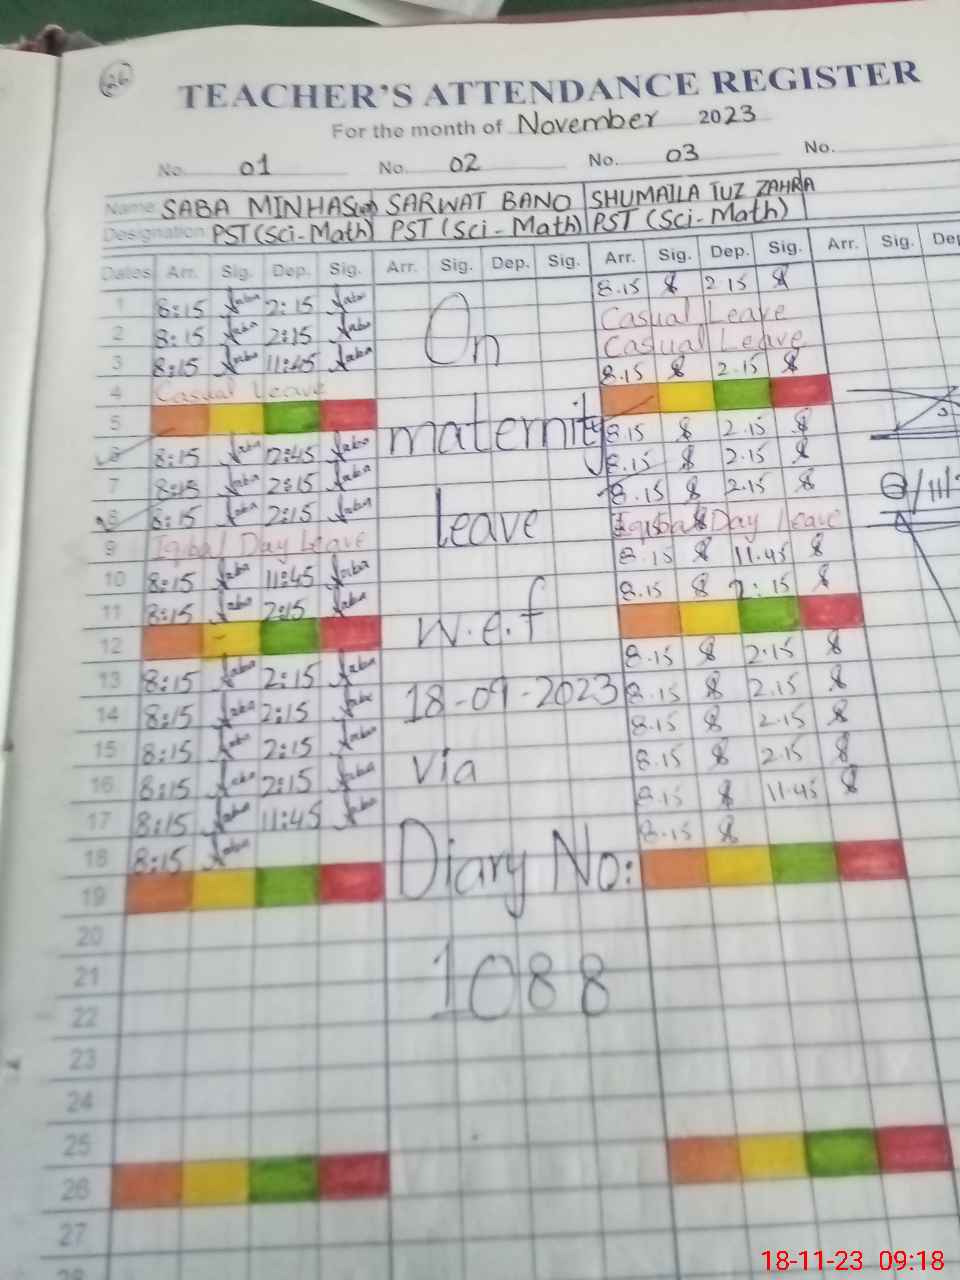 26
TEACHER'S ATTENDANCE REGISTER
For the month of November 2023
No. 01 No. 02 No. 03 No.
Name SABA MINHAS SARWAT BANO SHUMAILA TUZ ZAHRA
Designation PST (Sci-Math) PST (Sci-Math) PST (Sci-Math)
Dates Arr. Sig. Dep. Sig. Arr. Sig. Dep. Sig. Arr. Sig. Dep. Sig. Arr. Sig. Dep
1 8:15 Saba 2:15 Saba 8.15 2.15
2 8:15 Saba 2:15 Saba On Casual Leave
3 8:15 Saba 11:45 Saba Casual Leave
4 Casual Leave 8.15 2.15
5 maternity
6 8:15 Saba 2:45 Saba 8.15 2.15
7 8:15 Saba 2:15 Saba 8.15 2.15
8 8:15 Saba 2:15 Saba leave 8.15 2.15
9 Iqbal Day Leave Iqbal Day leave
10 8:15 Saba 11:45 Saba 8.15 11.45
11 8:15 Saba 2:15 Saba w.e.f 8.15 2:15
12
13 8:15 Saba 2:15 Saba 18-09-2023 8.15 2.15
14 8:15 Saba 2:15 Saba 8.15 2.15
15 8:15 Saba 2:15 Saba via 8.15 2.15
16 8:15 Saba 2:15 Saba 8.15 2.15
17 8:15 Saba 11:45 Saba 8.15 11.45
18 8:15 Saba Diary No: 8.15
19
20
21 1088
22
23
24
25
26
27
28
18-11-23 09:18